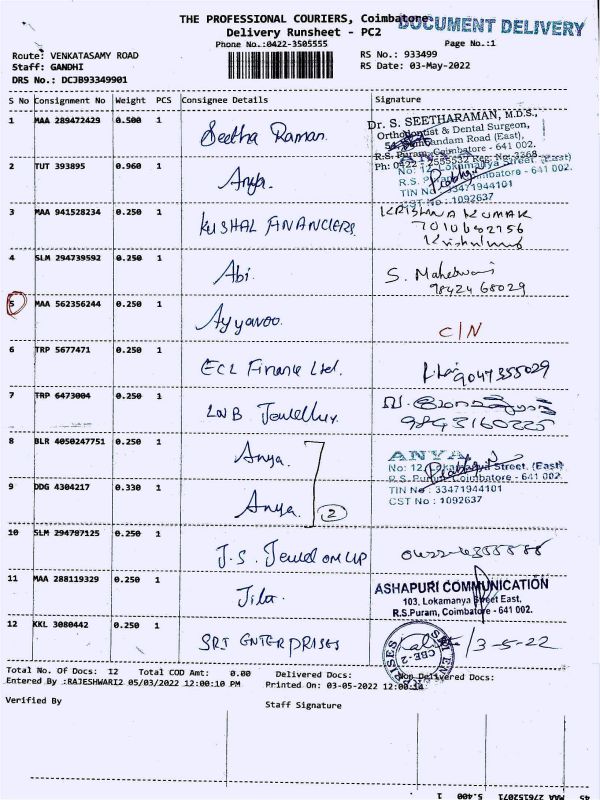 THE PROFESSIONAL COURIERS, Coimbatore
DOCUMENT DELIVERY
Delivery Runsheet - PC2
Phone No.:0422-3505555
Page No.:1
Route: VENKATASAMY ROAD
RS No.: 933499
Staff: GANDHI
RS Date: 03-May-2022
DRS No.: DCJB93349901
S No Consignment No Weight PCS Consignee Details Signature
1 MAA 289472429 0.500 1 Seetha Raman
Dr. S. SEETHARAMAN, M.D.S.,
Orthodontist & Dental Surgeon,
Road (East),
R.S. Puram, Coimbatore - 641 002.
Ph: 0422 - 2555532 Reg. No: 3268
2 TUT 393895 0.960 1 Anya.
No: 12, Lokamanya Street (East)
R.S. Puram, Coimbatore - 641 002.
TIN No : 33471944101
CST No : 1092637
3 MAA 941528234 0.250 1 KUSHAL FINANCIERS
KRISHNA KUMAR
4 SLM 294739592 0.250 1 Abi.
S. Maheswari
98424 68029
5 MAA 562356244 0.250 1 Ayyavoo.
C/N
6 TRP 5677471 0.250 1 ECL Finance Ltd.
9047355029
7 TRP 6473004 0.250 1 LNB Jewellery.
9843160225
8 BLR 4050247751 0.250 1 Anya.
ANYA
No: 12, Lokamanya Street, (East)
R.S. Puram, Coimbatore - 641 002.
TIN No : 33471944101
CST No : 1092637
9 DDG 4304217 0.330 1 Anya.
2
10 SLM 294787125 0.250 1 J.S.
11 MAA 288119329 0.250 1
ASHAPURI COMMUNICATION
103, Lokamanya Street East,
R.S.Puram, Coimbatore - 641 002.
12 KKL 3080442 0.250 1 SRI ENTERPRISES
SRI ENTERPRISES
CBE-2
3-5-22
Total No. Of Docs: 12 Total COD Amt: 0.00 Delivered Docs: Non Delivered Docs:
Entered By :RAJESHWARI2 05/03/2022 12:00:10 PM Printed On: 03-05-2022 12:00:14
Verified By
Staff Signature
45 MAA 276152071 5.400 1